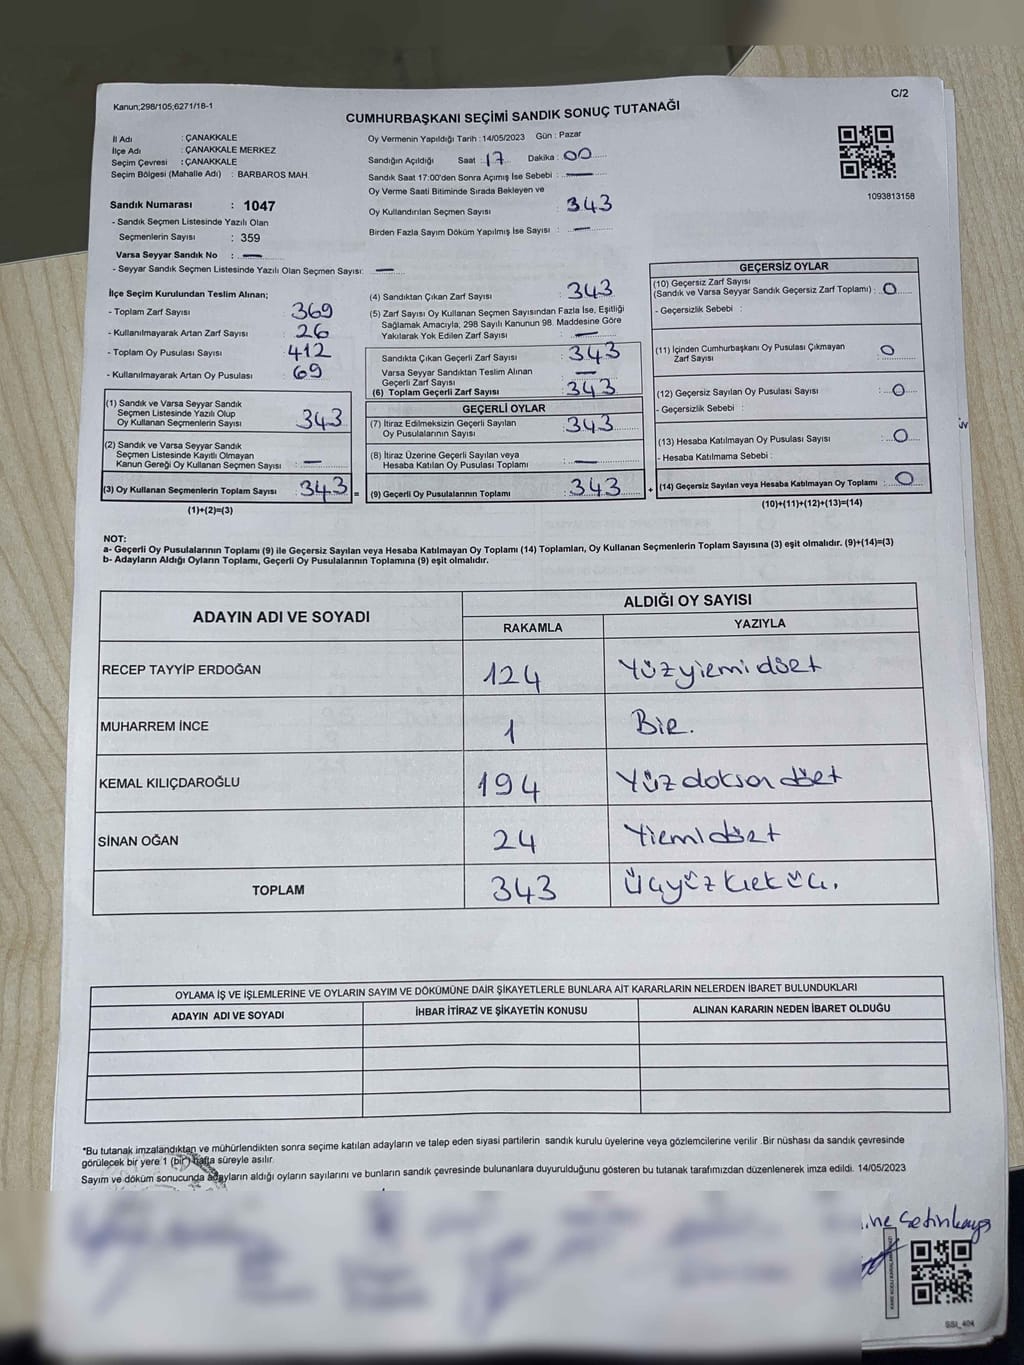 Kanun;298/105;6271/18-1
C/2
CUMHURBAŞKANI SEÇİMİ SANDIK SONUÇ TUTANAĞI
İl Adı : ÇANAKKALE
İlçe Adı : ÇANAKKALE MERKEZ
Seçim Çevresi : ÇANAKKALE
Seçim Bölgesi (Mahalle Adı) : BARBAROS MAH.
Sandık Numarası : 1047
- Sandık Seçmen Listesinde Yazılı Olan
Seçmenlerin Sayısı : 359
Varsa Seyyar Sandık No : —
- Seyyar Sandık Seçmen Listesinde Yazılı Olan Seçmen Sayısı: —
Oy Vermenin Yapıldığı Tarih : 14/05/2023 Gün : Pazar
Sandığın Açıldığı Saat : 17 Dakika : 00
Sandık Saat 17:00'den Sonra Açımış İse Sebebi : —
Oy Verme Saati Bitiminde Sırada Bekleyen ve
Oy Kullandırılan Seçmen Sayısı : 343
Birden Fazla Sayım Döküm Yapılmış İse Sayısı : —
1093813158
İlçe Seçim Kurulundan Teslim Alınan;
- Toplam Zarf Sayısı : 369
- Kullanılmayarak Artan Zarf Sayısı : 26
- Toplam Oy Pusulası Sayısı : 412
- Kullanılmayarak Artan Oy Pusulası : 69
(1) Sandık ve Varsa Seyyar Sandık
Seçmen Listesinde Yazılı Olup
Oy Kullanan Seçmenlerin Sayısı : 343
(2) Sandık ve Varsa Seyyar Sandık
Seçmen Listesinde Kayıtlı Olmayan
Kanun Gereği Oy Kullanan Seçmen Sayısı : —
(3) Oy Kullanan Seçmenlerin Toplam Sayısı : 343 =
(1)+(2)=(3)
(4) Sandıktan Çıkan Zarf Sayısı : 343
(5) Zarf Sayısı Oy Kullanan Seçmen Sayısından Fazla İse, Eşitliği
Sağlamak Amacıyla, 298 Sayılı Kanunun 98. Maddesine Göre
Yakılarak Yok Edilen Zarf Sayısı : —
Sandıkta Çıkan Geçerli Zarf Sayısı : 343
Varsa Seyyar Sandıktan Teslim Alınan
Geçerli Zarf Sayısı : —
(6) Toplam Geçerli Zarf Sayısı : 343
GEÇERLİ OYLAR
(7) İtiraz Edilmeksizin Geçerli Sayılan
Oy Pusulalarının Sayısı : 343
(8) İtiraz Üzerine Geçerli Sayılan veya
Hesaba Katılan Oy Pusulası Toplamı : —
(9) Geçerli Oy Pusulalarının Toplamı : 343 +
GEÇERSİZ OYLAR
(10) Geçersiz Zarf Sayısı
(Sandık ve Varsa Seyyar Sandık Geçersiz Zarf Toplamı) : 0
- Geçersizlik Sebebi :
(11) İçinden Cumhurbaşkanı Oy Pusulası Çıkmayan
Zarf Sayısı : 0
(12) Geçersiz Sayılan Oy Pusulası Sayısı : 0
- Geçersizlik Sebebi :
(13) Hesaba Katılmayan Oy Pusulası Sayısı : 0
- Hesaba Katılmama Sebebi :
(14) Geçersiz Sayılan veya Hesaba Katılmayan Oy Toplamı : 0
(10)+(11)+(12)+(13)=(14)
NOT:
a- Geçerli Oy Pusulalarının Toplamı (9) ile Geçersiz Sayılan veya Hesaba Katılmayan Oy Toplamı (14) Toplamları, Oy Kullanan Seçmenlerin Toplam Sayısına (3) eşit olmalıdır. (9)+(14)=(3)
b- Adayların Aldığı Oyların Toplamı, Geçerli Oy Pusulalarının Toplamına (9) eşit olmalıdır.
ADAYIN ADI VE SOYADI
ALDIĞI OY SAYISI
RAKAMLA YAZIYLA
RECEP TAYYİP ERDOĞAN 124 Yüzyirmi dört
MUHARREM İNCE 1 Bir.
KEMAL KILIÇDAROĞLU 194 Yüz doksan dört
SİNAN OĞAN 24 Yirmi dört
TOPLAM 343 Üçyüz kırk üç.
OYLAMA İŞ VE İŞLEMLERİNE VE OYLARIN SAYIM VE DÖKÜMÜNE DAİR ŞİKAYETLERLE BUNLARA AİT KARARLARIN NELERDEN İBARET BULUNDUKLARI
ADAYIN ADI VE SOYADI İHBAR İTİRAZ VE ŞİKAYETİN KONUSU ALINAN KARARIN NEDEN İBARET OLDUĞU
*Bu tutanak imzalandıktan ve mühürlendikten sonra seçime katılan adayların ve talep eden siyasi partilerin sandık kurulu üyelerine veya gözlemcilerine verilir .Bir nüshası da sandık çevresinde
görülecek bir yere 1 (bir) hafta süreyle asılır.
Sayım ve döküm sonucunda adayların aldığı oyların sayılarını ve bunların sandık çevresinde bulunanlara duyurulduğunu gösteren bu tutanak tarafımızdan düzenlenerek imza edildi. 14/05/2023
SSI_404